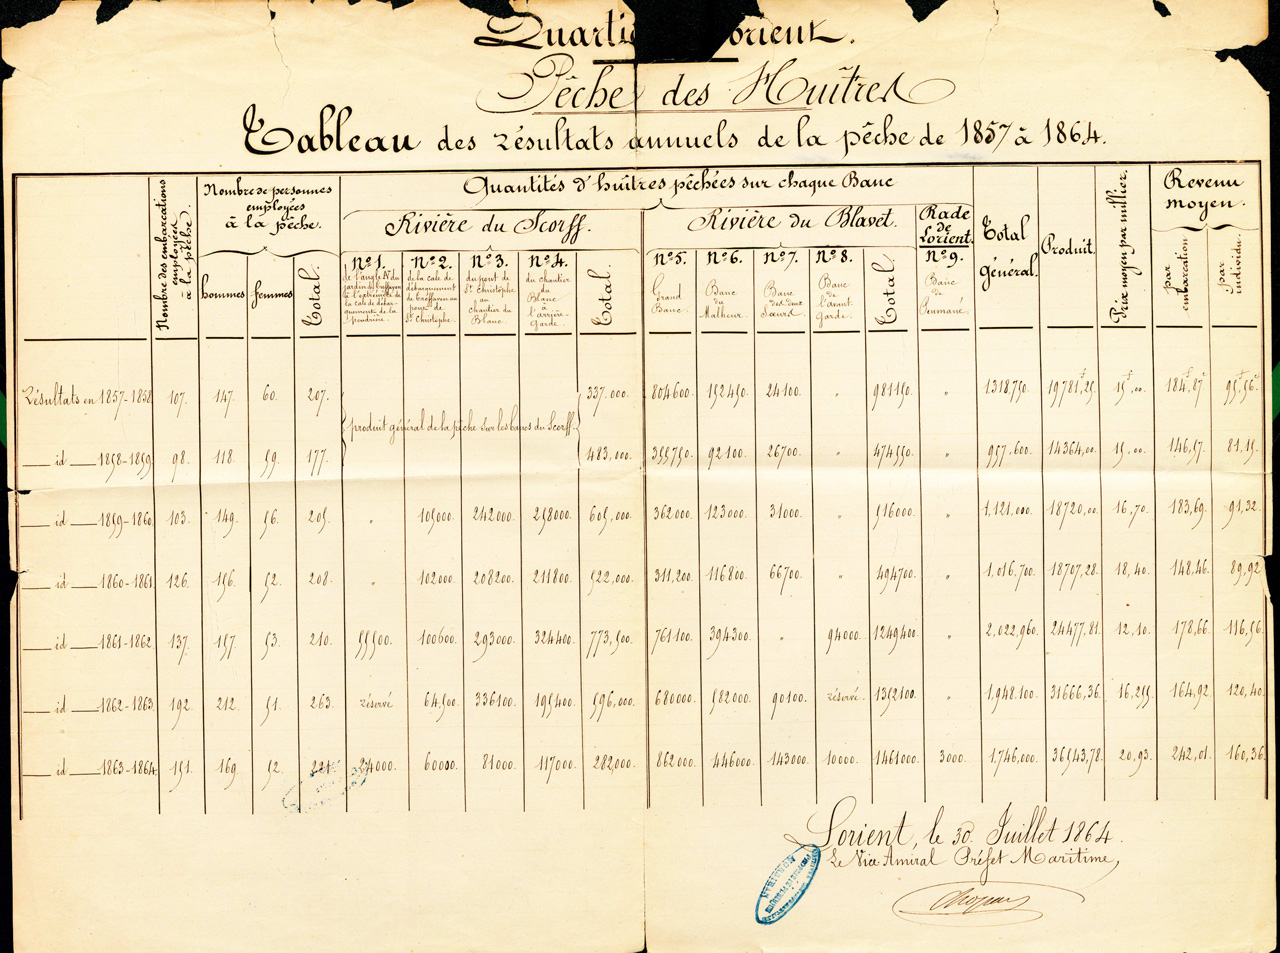 Quarti orient.
Pêche des Huîtres
Tableau des résultats annuels de la pêche de 1857 à 1864.
Nombre des embarcations employées à la pêche.
Nombre de personnes
employées
à la pêche.
hommes femmes Total.
Quantités d'huîtres pêchées sur chaque Banc
Rivière du Scorff.
Rivière du Blavet.
Rade
de
Lorient.
Total
général.
Produit.
Prix moyen par millier.
Revenu
moyen.
par embarcation
par individu.
n°1. n°2. n°3. n°4. Total.
de la cale de
débarquement
pont de
St Christophe.
du pont de
St Christophe
au
chantier du
Blanc.
du chantier
du
Blanc
à
l'arrière-
Garde.
n°5. n°6. n°7. n°8. Total. n°9.
Grand
Banc.
Banc
du
Malheur.
Banc
des deux
Banc
de
l'avant
Garde.
Banc
de
Résultats en 1857-1858 107. 147. 60. 207. 337.000. 804600. 152450. 24100. " 981150. " 1318750. 19781f,25. 15f,00. 184f,87c 95f,56c
produit général de la pêche sur les bancs du Scorff.
id 1858-1859 98. 118. 59. 177. 483,000. 355750. 92100. 26700. " 474550. " 957.600. 14364,00. 15,00. 146,57. 81,15.
id 1859-1860 103. 149. 56. 205. " 105000. 242000. 258000. 605,000. 362000. 123000. 31000. " 516000. " 1,121,000. 18720,00. 16,70. 183,69. 91,32.
id 1860-1861 126. 156. 52. 208. " 102000. 208200. 211800. 522,000. 311,200. 116800. 66700. " 494700. " 1,016,700. 18707,28. 18,40. 148,46. 89,92
id 1861-1862. 137. 157. 53. 210. 55500. 100600. 293000. 324400. 773,500. 761100. 394300. " 94000. 1249400. " 2,022,960. 24477,81. 12,10. 178,66. 116,56.
id 1862-1863. 192. 212. 51. 263. réservé 64,500. 336100. 195400. 596,000. 680000. 582000. 90100. réservé. 1352100. " 1,948,100. 31666,36. 16,255. 164,92. 120,40.
id 1863-1864. 151. 169. 52. 221. 24000. 60000. 81000. 117000. 282,000. 862000. 446000. 143000. 10000. 1461000. 3000. 1.746,000. 36543,78. 20,93. 242,01. 160,36.
Lorient, le 30 Juillet 1864.
Le Vice Amiral Préfet Maritime,